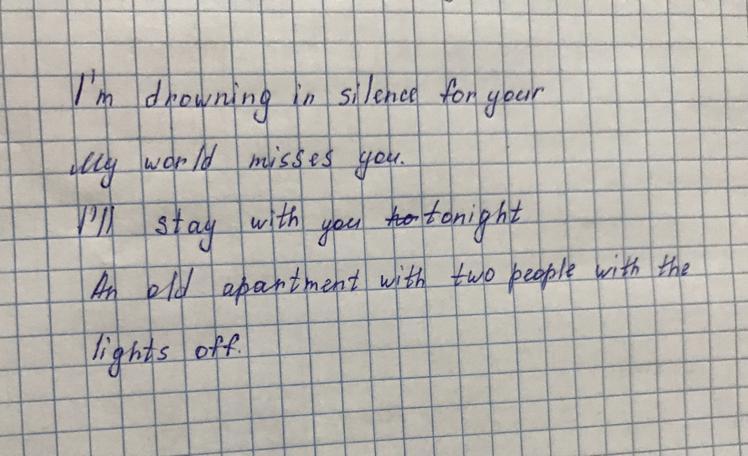 I'm drowning in silence for your
My world misses you.
I'll stay with you tonight
An old apartment with two people with the
lights off.